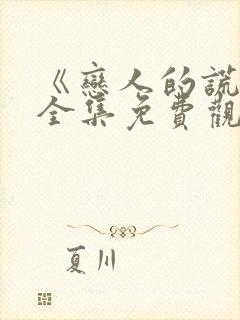 《戀人的謊
全集免費觀
夏川